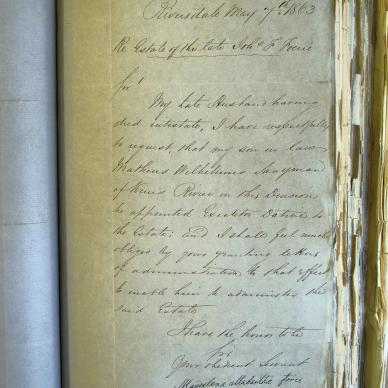 Riversdale May 7th 1863
Re Estate of the late Johs F Fourie
Sir!
My late Husband having
died intestate, I have respectfully
to request, that my son in law
Matheus Wilhelmus Snayman
of River in this Division
be appointed Executor Dative to
the Estate; and I shall feel much
obliged by your granting letters
of administration to that effect
to enable him to administer the
said Estate
I have the honor to be
Sir
Your obedient Servant